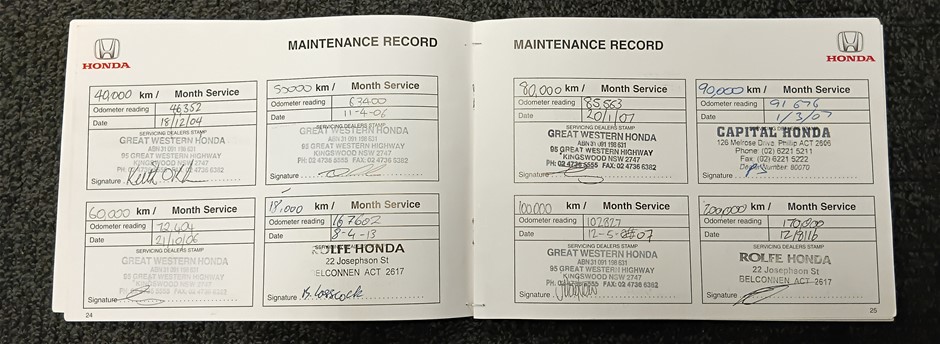 HONDA
MAINTENANCE RECORD
40,000 km / Month Service
Odometer reading 46352
Date 18/12/04
SERVICING DEALERS STAMP
GREAT WESTERN HONDA
ABN 31 091 198 631
95 GREAT WESTERN HIGHWAY
KINGSWOOD NSW 2747
PH: 02 4736 5555 FAX: 02 4736 6382
Signature
km / Month Service
Odometer reading 63400
Date 11-4-06
SERVICING DEALERS STAMP
GREAT WESTERN HONDA
ABN 31 091 198 631
95 GREAT WESTERN HIGHWAY
KINGSWOOD NSW 2747
PH: 02 4736 5555 FAX: 02 4736 6382
Signature
60,000 km / Month Service
Odometer reading
Date 21/10/06
SERVICING DEALERS STAMP
GREAT WESTERN HONDA
ABN 31 091 198 631
95 GREAT WESTERN HIGHWAY
KINGSWOOD NSW 2747
PH: 02 4736 5555 FAX: 02 4736 6382
Signature
km / Month Service
Odometer reading 167602
Date 8-4-13
ROLFE HONDA
22 Josephson St
BELCONNEN ACT 2617
Signature
24
MAINTENANCE RECORD
HONDA
80,000 km / Month Service
Odometer reading 85563
Date 20/1/07
SERVICING DEALERS STAMP
GREAT WESTERN HONDA
ABN 31 091 198 631
95 GREAT WESTERN HIGHWAY
KINGSWOOD NSW 2747
PH: 02 4736 5555 FAX: 02 4736 6382
Signature
90,000 km / Month Service
Odometer reading 91 676
Date 1/3/07
SERVICING DEALERS STAMP
CAPITAL HONDA
126 Melrose Drive Phillip ACT 2606
Phone: (02) 6221 5211
Fax: (02) 6221 5222
Dealer Number: 80070
Signature
100,000 km / Month Service
Odometer reading
Date
SERVICING DEALERS STAMP
GREAT WESTERN HONDA
ABN 31 091 198 631
95 GREAT WESTERN HIGHWAY
KINGSWOOD NSW 2747
PH: 02 4736 5555 FAX: 02 4736 6382
Signature
km / Month Service
Odometer reading
Date
SERVICING DEALERS STAMP
ROLFE HONDA
22 Josephson St
BELCONNEN ACT 2617
Signature
25